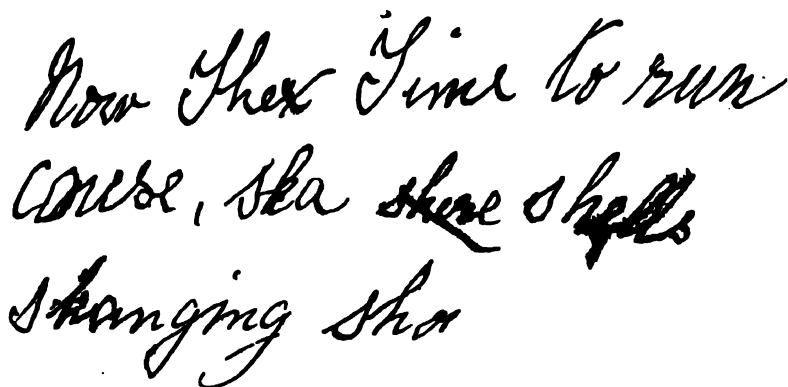 Now Thex Time to run
couse, ska shore shells
skanging sho